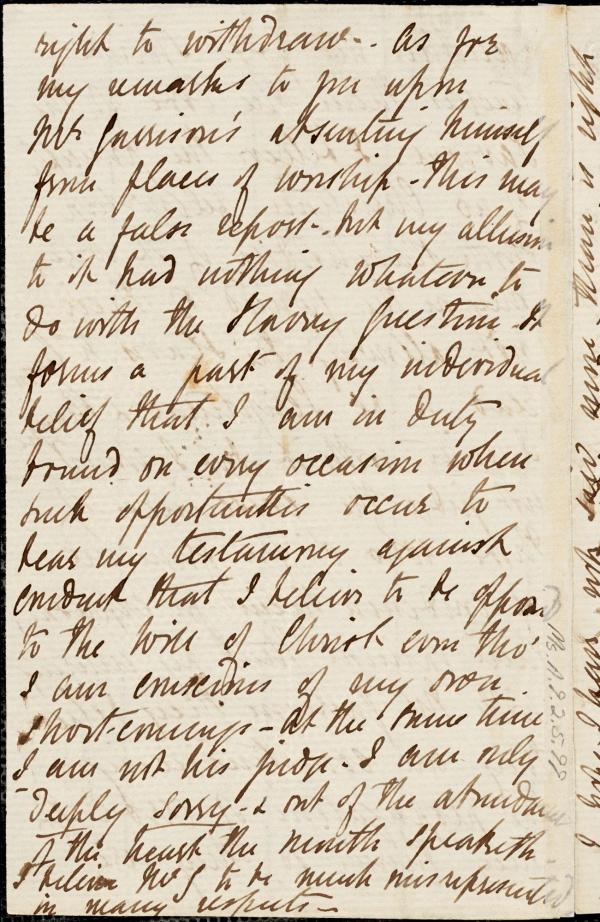 right to withdraw-. As for
my remarks to you upon
Mr Garrison's absenting himself
from places of worship - this may
be a false report-. but my allusion
to it had nothing whatever to
do with the Slavery question - It
forms a part of my individual
belief that I am in duty
bound on every occasion when
such opportunities occur to
bear my testimony against
conduct that I believe to be oppos
to the will of Christ even tho'
I am conscious of my own
short-comings - at the same time
I am not his judge - I am only
deeply sorry - & out of the abundance
of the heart the mouth speaketh -
I believe Mr G to be much misrepresented
in many respects -